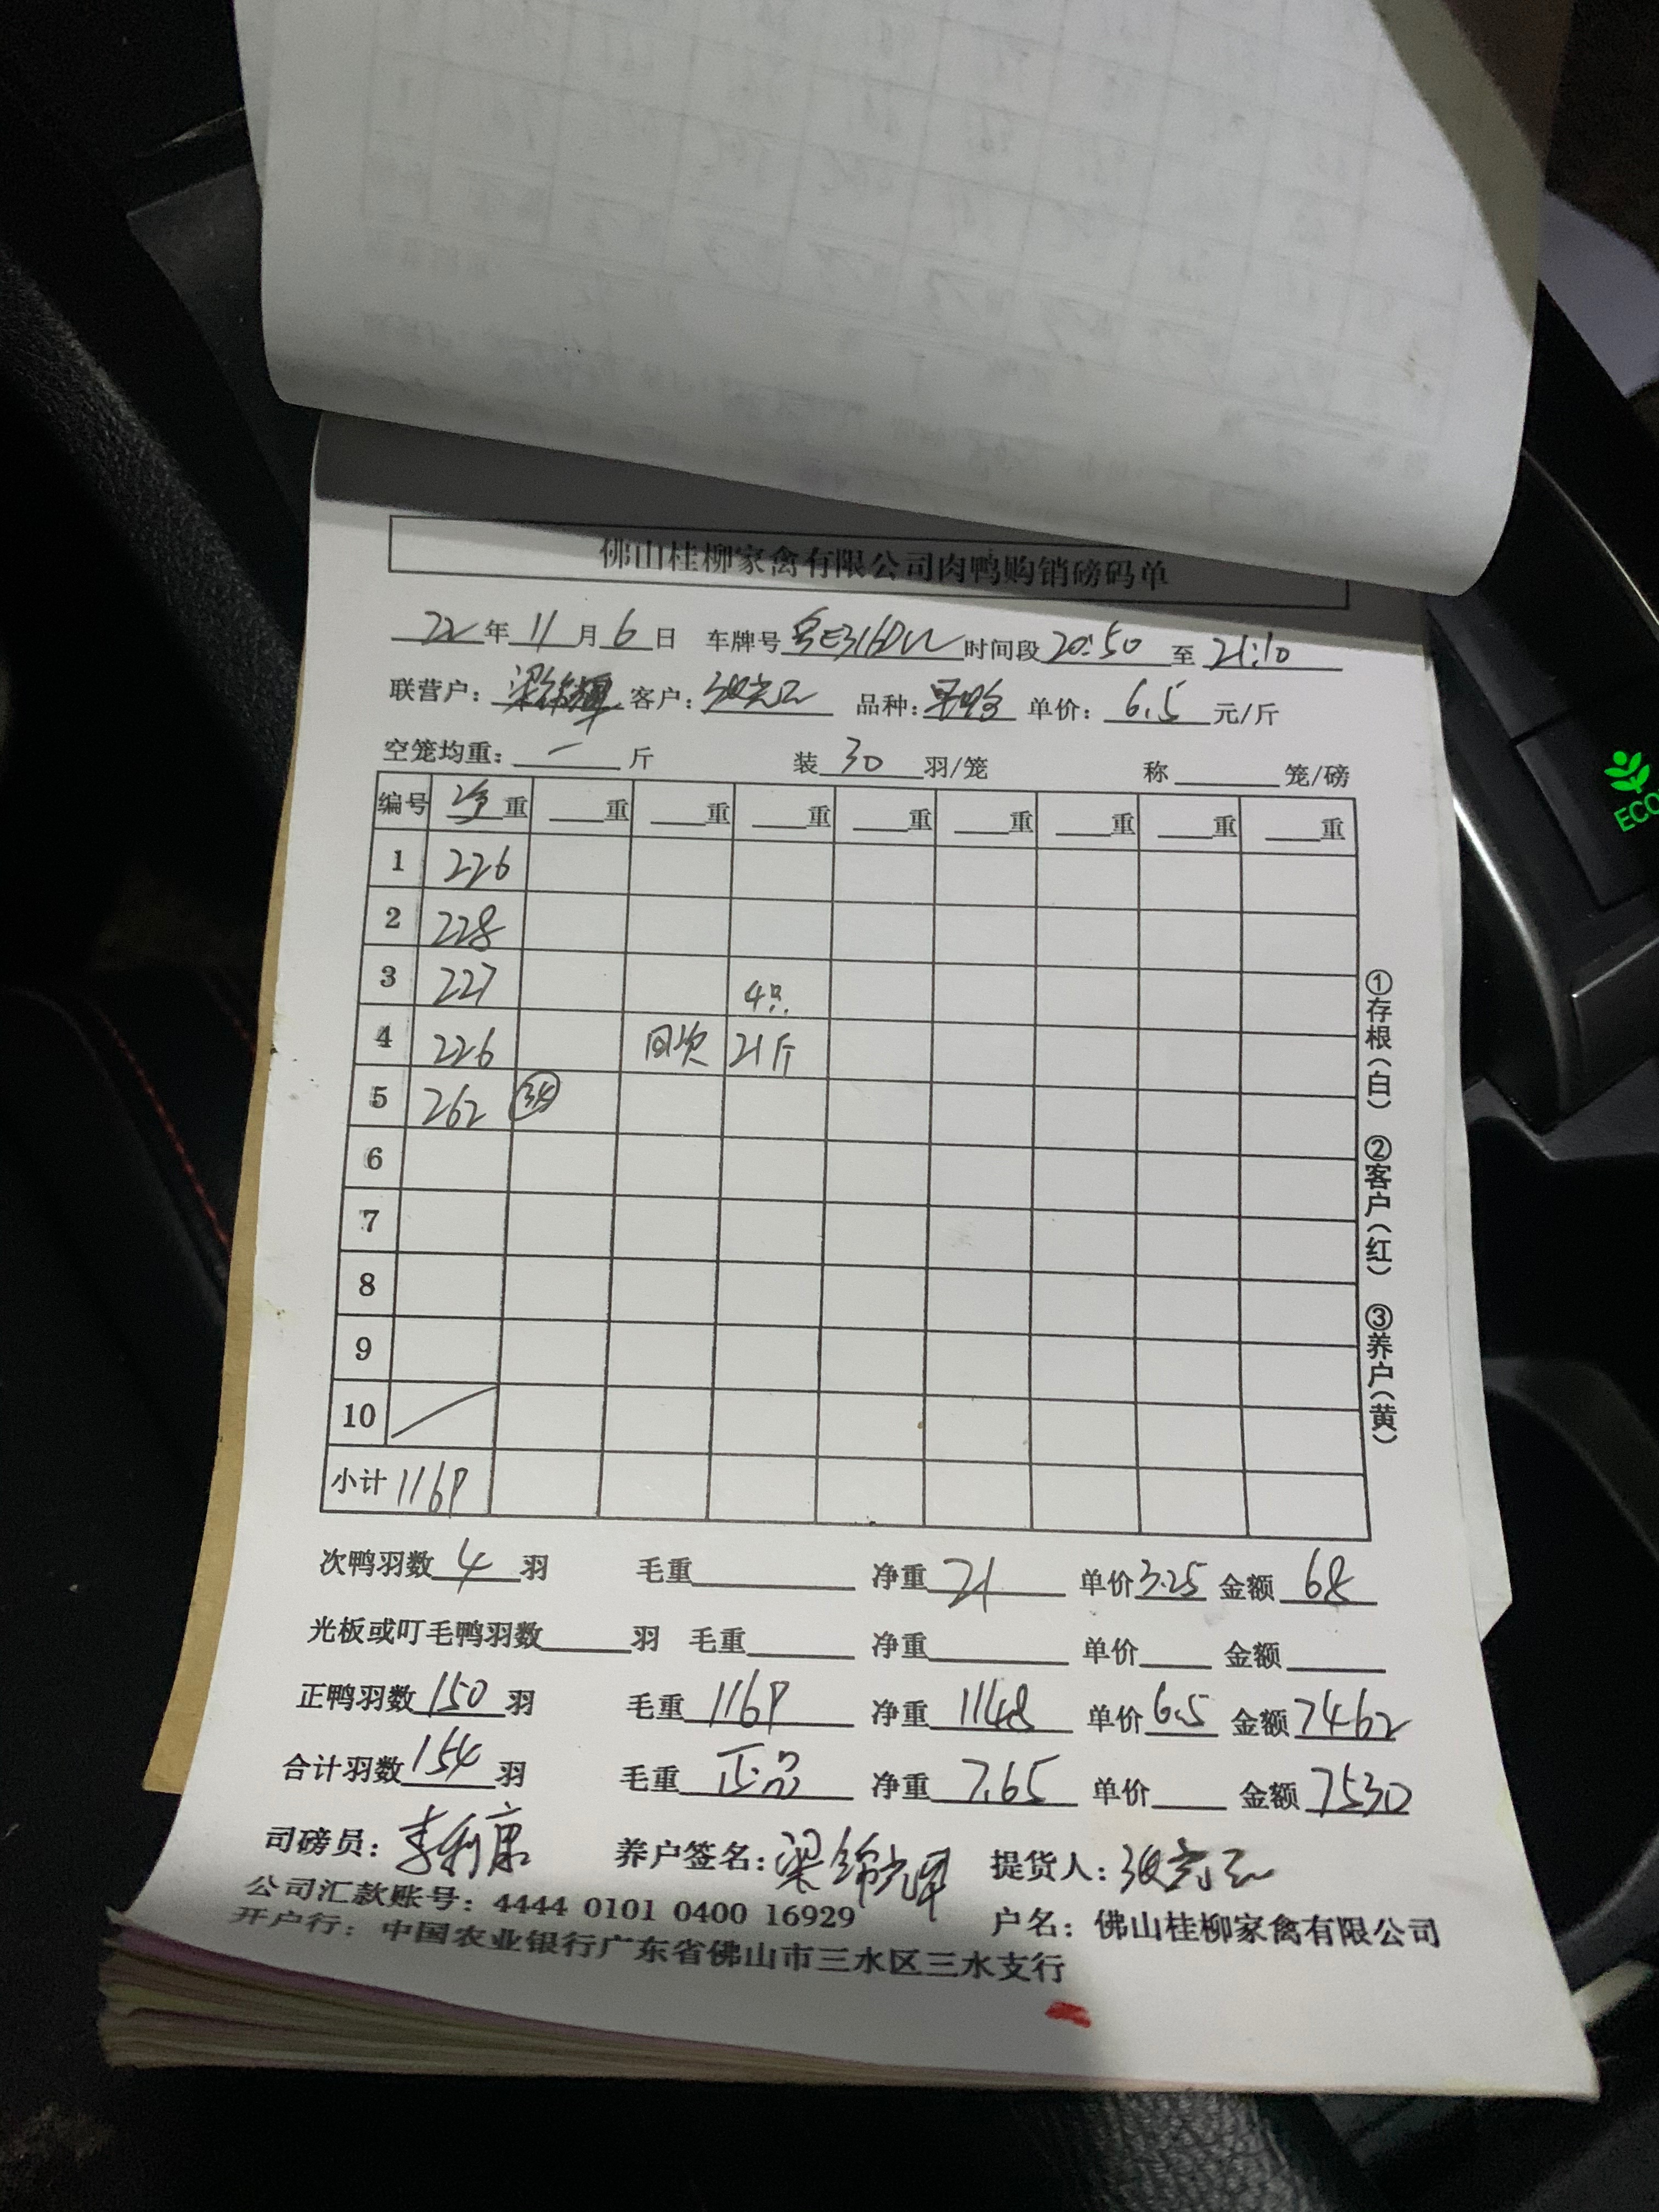 佛山桂柳家禽有限公司肉鸭购销磅码单
22年11月6日 车牌号 时间段20:50至21:10
联营户: 客户: 品种: 单价: 6.5元/斤
空笼均重: 一斤 装30羽/笼 称 笼/磅
编号 净重 重 重 重 重 重 重 重 重
1 226
2 228
3 227 4只
4 226 回次 21斤
5 262 34
6
7
8
9
10
小计 1169
次鸭羽数4羽 毛重 净重21 单价3.25 金额68
光板或叮毛鸭羽数 羽 毛重 净重 单价 金额
正鸭羽数150羽 毛重1169 净重1148 单价6.5 金额7462
合计羽数154羽 毛重正品 净重7.65 单价 金额7530
司磅员: 李利康 养户签名: 梁锦辉 提货人:
公司汇款账号: 4444 0101 0400 16929 户名: 佛山桂柳家禽有限公司
开户行: 中国农业银行广东省佛山市三水区三水支行
①存根(白) ②客户(红) ③养户(黄)
ECO